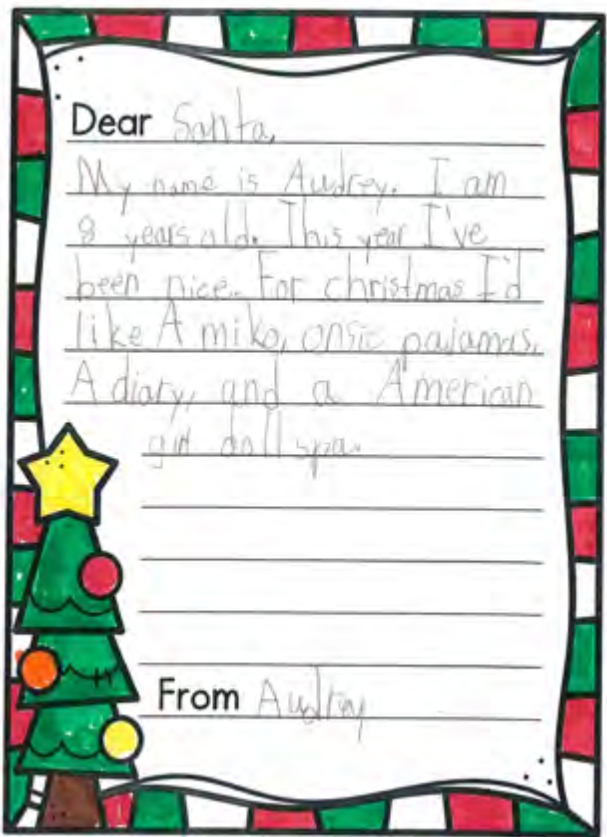 Dear Santa,
My name is Audrey. I am
8 years old. This year I've
been nice. For christmas I'd
like A miko, onsic pajamas,
A diary, and a American
girl doll spa.
From Audrey